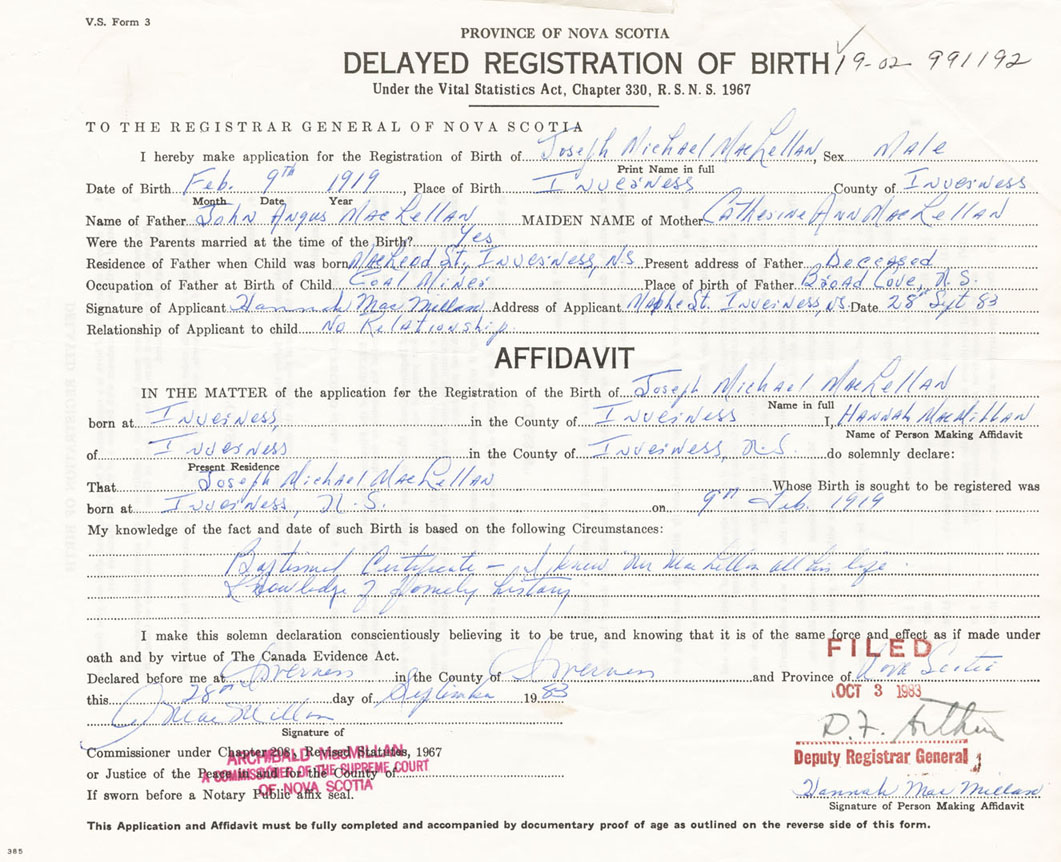 V.S. Form 3
PROVINCE OF NOVA SCOTIA
DELAYED REGISTRATION OF BIRTH 19-02 991192
Under the Vital Statistics Act, Chapter 330, R.S.N.S. 1967
TO THE REGISTRAR GENERAL OF NOVA SCOTIA
I hereby make application for the Registration of Birth of Joseph Michael MacLellan, Sex Male
Print Name in full
Date of Birth Feb. 9th 1919, Place of Birth Inverness County of Inverness
Month Date Year
Name of Father John Angus MacLellan MAIDEN NAME of Mother Catherine Ann MacLellan
Were the Parents married at the time of the Birth? Yes
Residence of Father when Child was born MacLeod St., Inverness, N.S. Present address of Father Deceased
Occupation of Father at Birth of Child Coal Miner Place of birth of Father Broad Cove, N.S.
Signature of Applicant Hannah MacMillan Address of Applicant St. Inverness, NS. Date 28th Sept 83
Relationship of Applicant to child No Relationship
AFFIDAVIT
IN THE MATTER of the application for the Registration of the Birth of Joseph Michael MacLellan
Name in full
born at Inverness, in the County of Inverness I, Hannah MacMillan
Name of Person Making Affidavit
of Inverness in the County of Inverness, N.S. do solemnly declare:
Present Residence
That Joseph Michael MacLellan Whose Birth is sought to be registered was
born at Inverness, N.S. on 9th Feb. 1919
My knowledge of the fact and date of such Birth is based on the following Circumstances:
Baptismal Certificate - I knew Mr MacLellan all his life.
Knowledge of family history
I make this solemn declaration conscientiously believing it to be true, and knowing that it is of the same force and effect as if made under
oath and by virtue of The Canada Evidence Act.
FILED
Declared before me at Inverness in the County of Inverness and Province of Nova Scotia
this 28th day of September 1983
OCT 3 1983
MacMillan
D.F. Arthur
Signature of
Commissioner under Chapter 298, Revised Statutes, 1967
ARCHIBALD MacMILLAN
Deputy Registrar General
or Justice of the Peace in and for the County of
A COMMISSIONER OF THE SUPREME COURT
OF NOVA SCOTIA
If sworn before a Notary Public affix seal.
Hannah MacMillan
Signature of Person Making Affidavit
This Application and Affidavit must be fully completed and accompanied by documentary proof of age as outlined on the reverse side of this form.
385